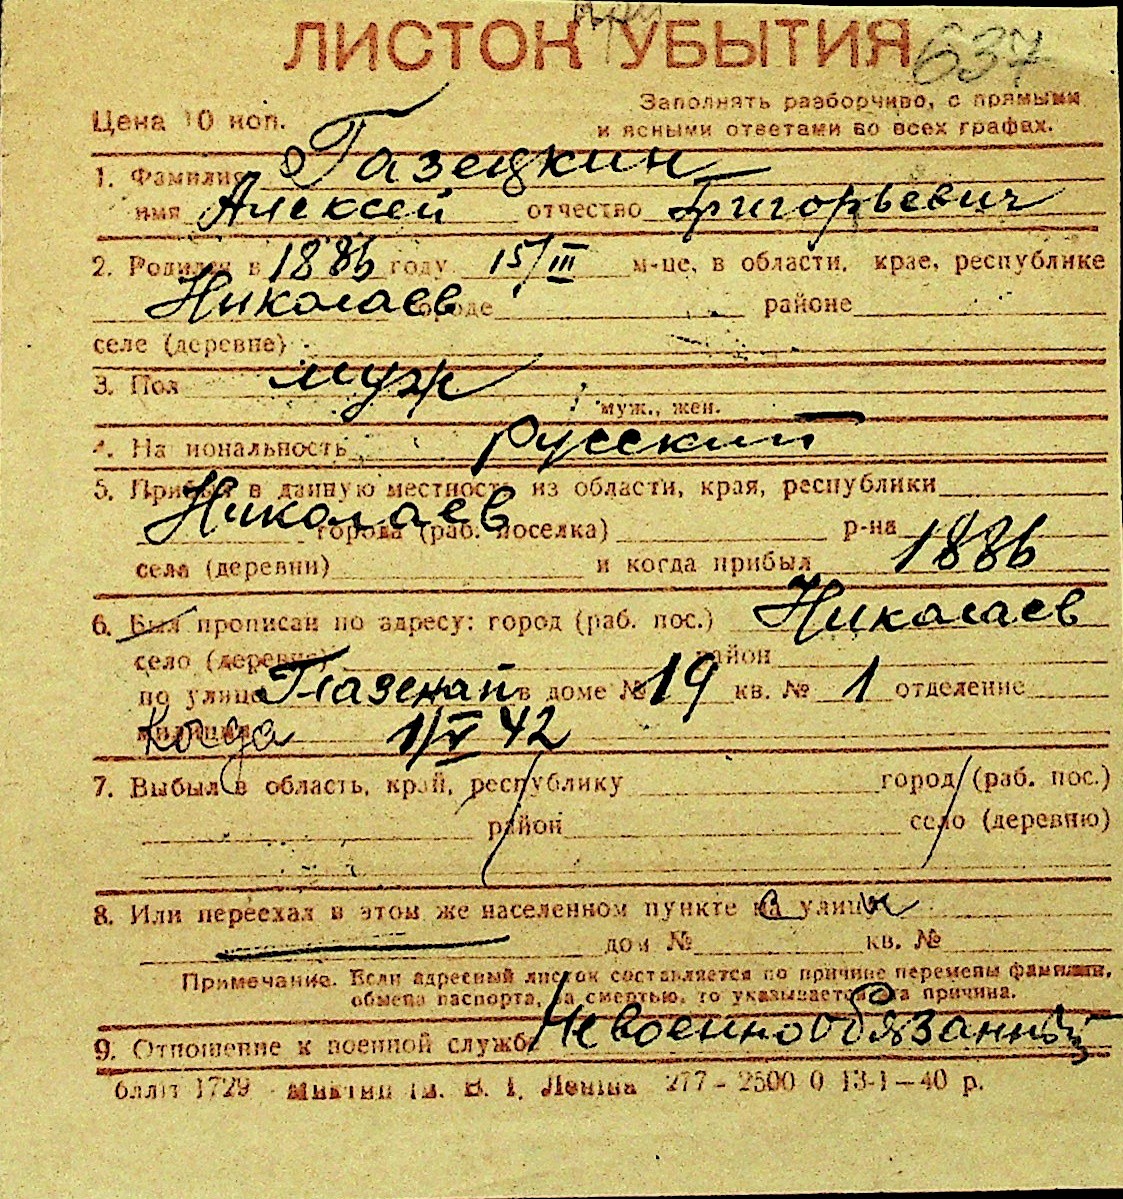 ЛИСТОК УБЫТИЯ 637
Заполнять разборчиво, с прямыми
Цена 10 коп.
и ясными ответами во всех графах.
1. Фамилия Газецкин
имя Алексей отчество Григорьевич
2. Родился в 1886 году 15/III м-це, в области, крае, республике
Николаев городе районе
селе (деревне)
3. Пол муж
муж., жен.
4. Национальность русский
5. Прибыл в данную местность из области, края, республики
Николаев города (раб. поселка) р-на
села (деревни) и когда прибыл 1886
6. Был прописан по адресу: город (раб. пос.) Николаев
село (деревня) район
по улице в доме № 19 кв. № 1 отделение
милиции Когда 1/V 42
7. Выбыл в область, край, республику город (раб. пос.)
район село (деревню)
8. Или переехал в этом же населенном пункте на улицу
дом № кв. №
Примечание. Если адресный листок составляется по причине перемены фамилии,
обмена паспорта, за смертью, то указывается эта причина.
9. Отношение к военной службе Невоеннообязанный
білліт 1729 ім. В. І. Леніна 277 - 2500 0 13-1-40 р.